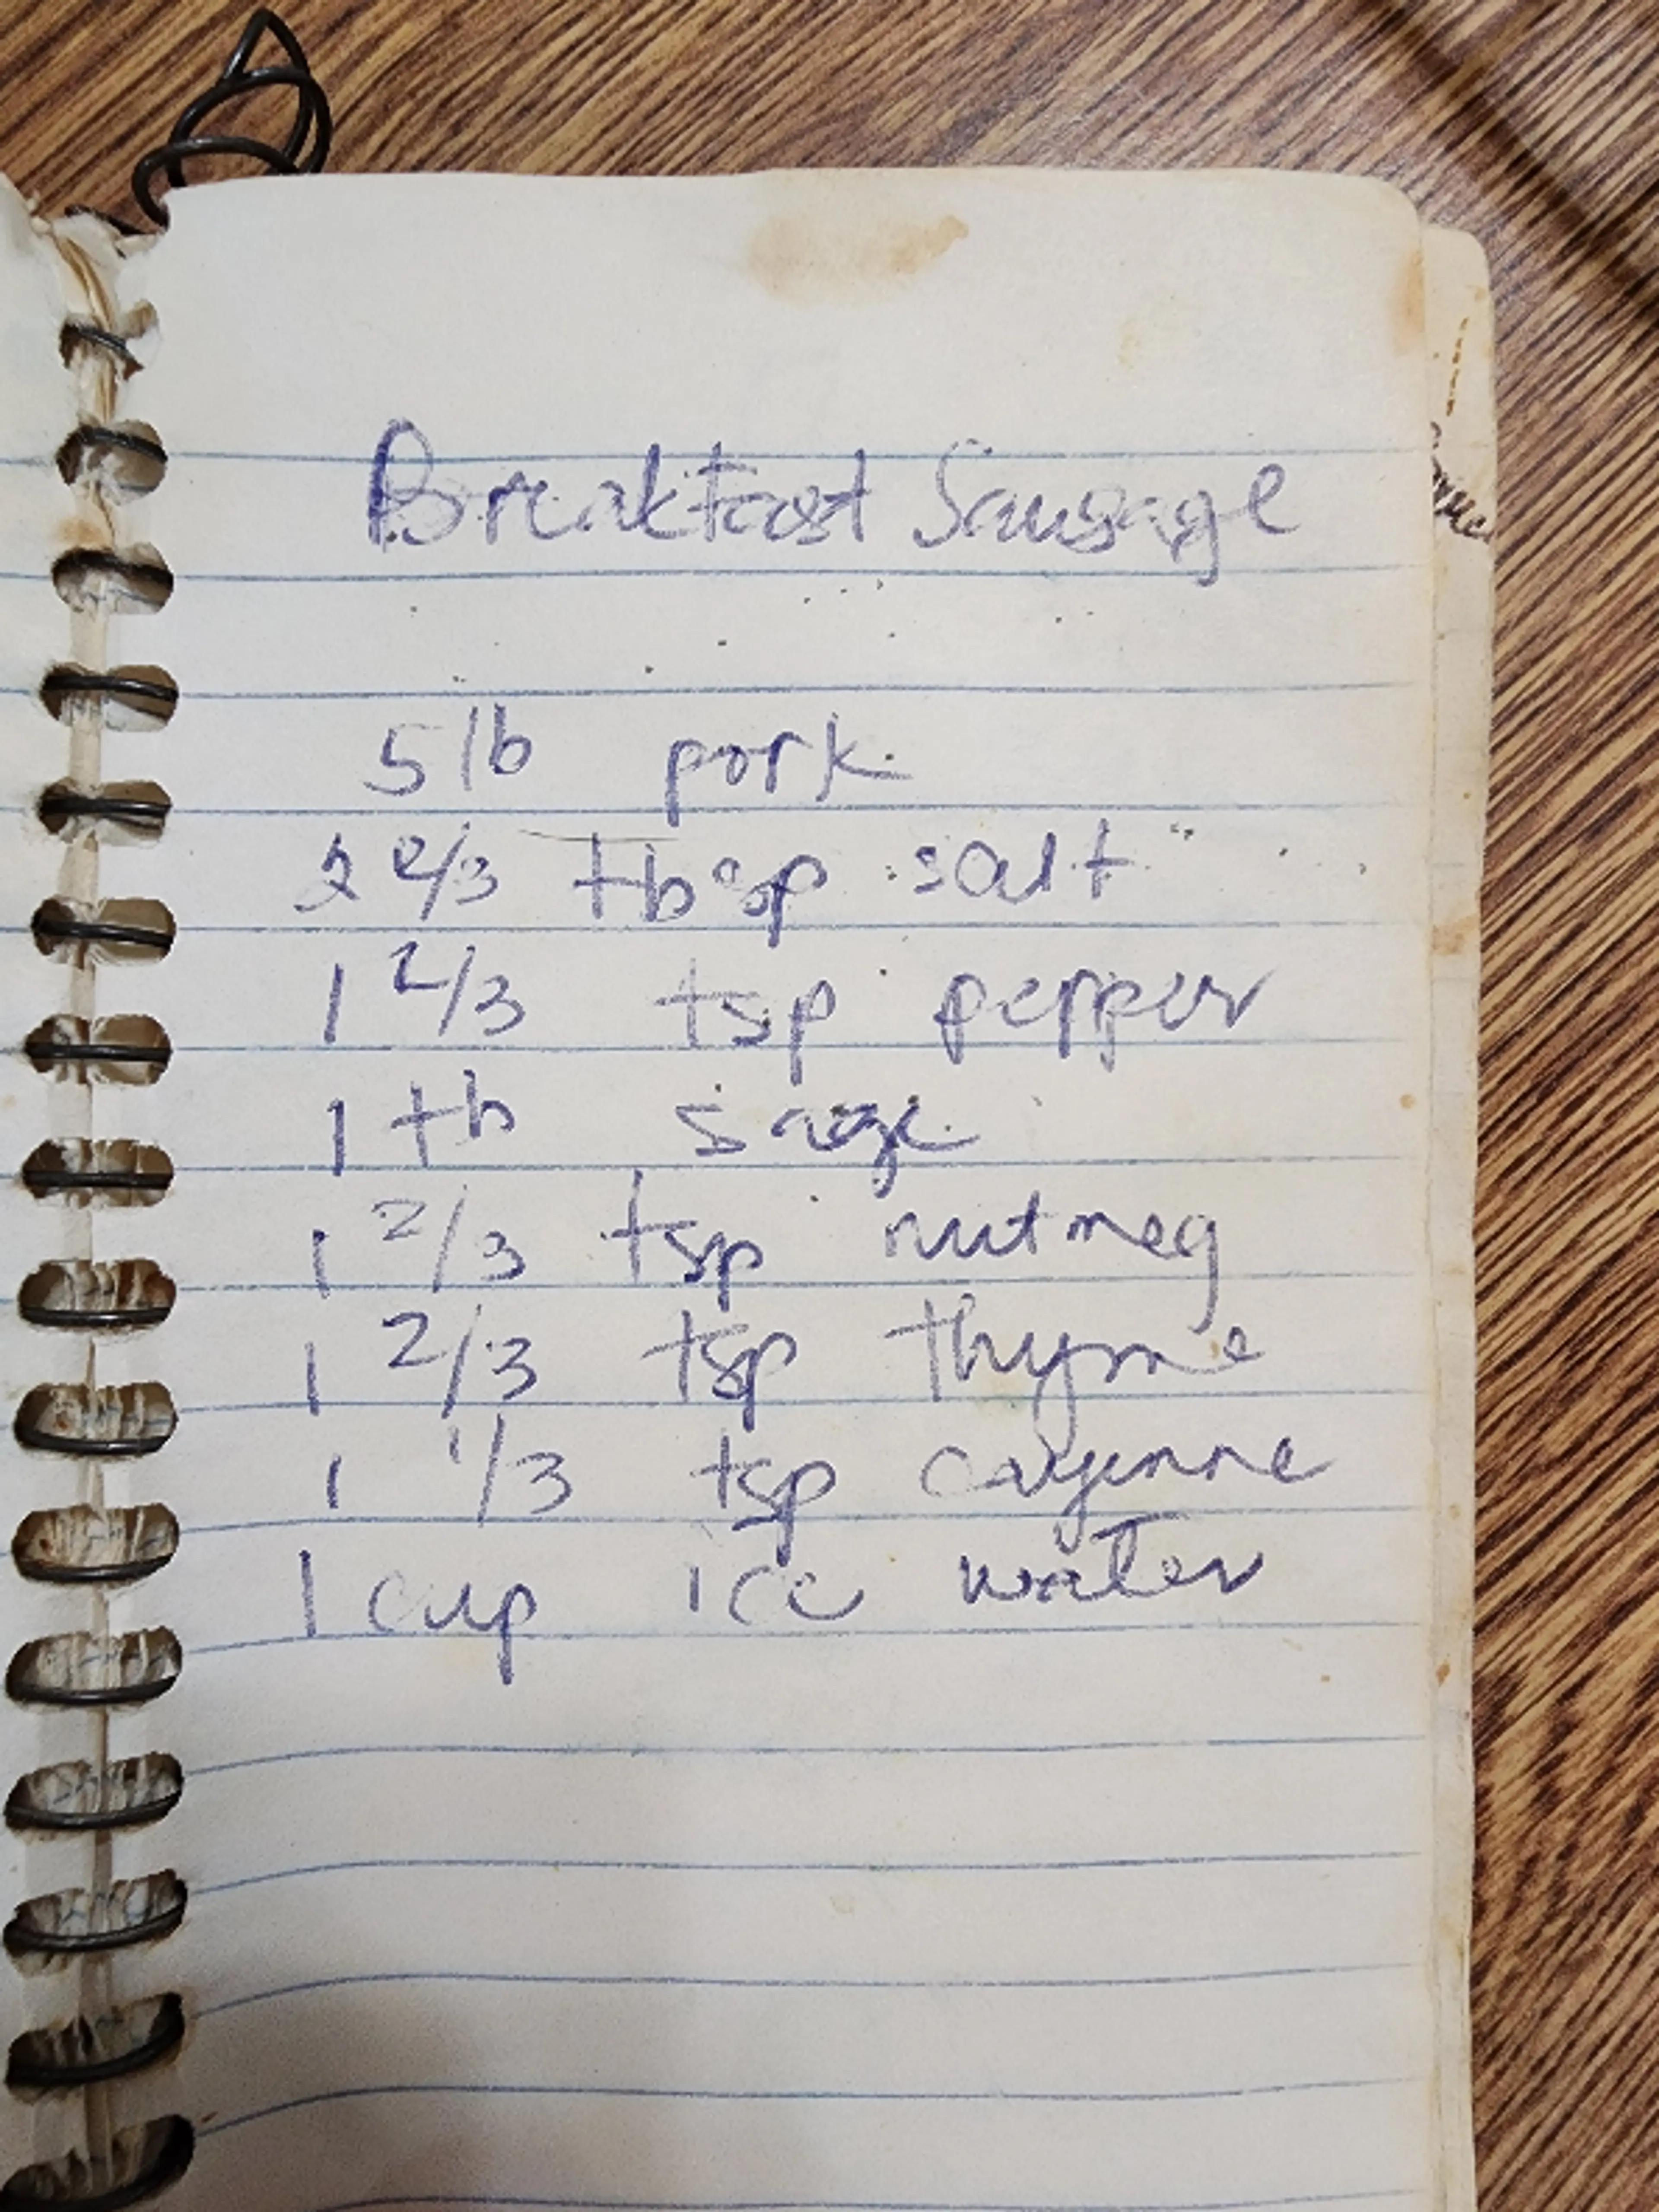 Breakfast Sausage
5 lb pork
2 2/3 tbsp salt
1 2/3 tsp pepper
1 tb sage
1 2/3 tsp nutmeg
1 2/3 tsp thyme
1 1/3 tsp cayenne
1 cup ice water